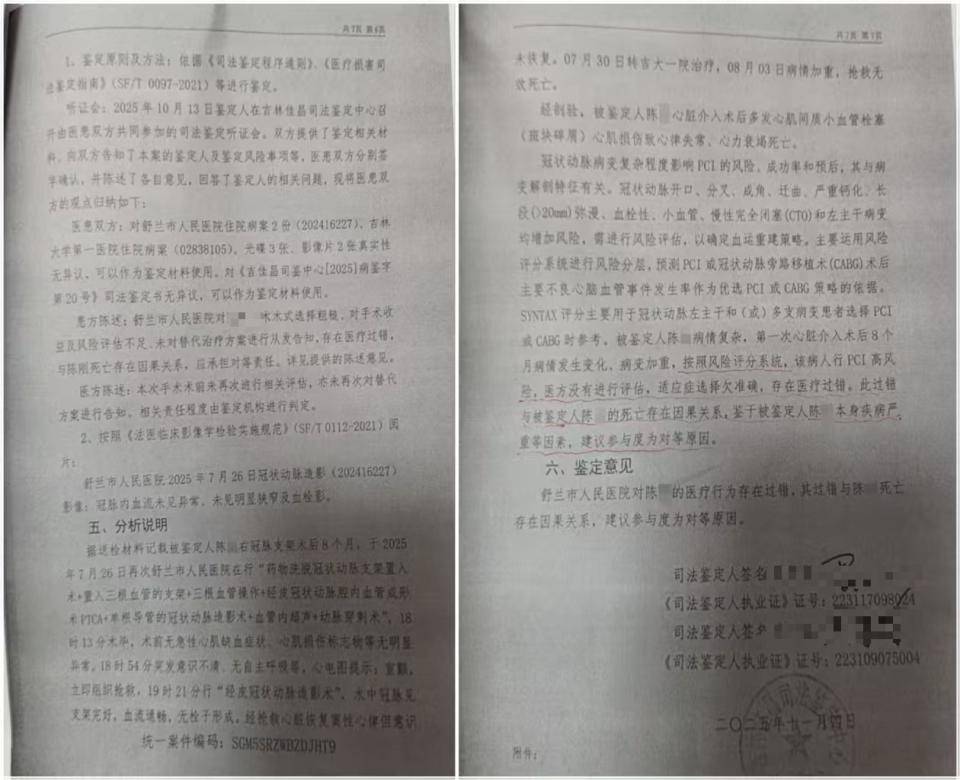 共7页 第6页
1、鉴定原则及方法：依据《司法鉴定程序通则》、《医疗损害司
法鉴定指南》（SF/T 0097-2021）等进行鉴定。
听证会：2025年10月13日鉴定人在吉林佳昌司法鉴定中心召
开由医患双方共同参加的司法鉴定听证会。双方提供了鉴定相关材
料，向双方告知了本案的鉴定人及鉴定风险事项等，医患双方分别签
字确认，并陈述了各自意见，回答了鉴定人的相关问题，现将医患双
方的观点归纳如下：
医患双方：对舒兰市人民医院住院病案2份（202416227）、吉林
大学第一医院住院病案（02838105）、光碟3张、影像片2张真实性
无异议，可以作为鉴定材料使用。对《吉佳昌司鉴中心[2025]病鉴字
第20号》司法鉴定书无异议，可以作为鉴定材料使用。
患方陈述：舒兰市人民医院对 术式选择粗糙，对手术收
益及风险评估不足，未对替代治疗方案进行从发告知，存在医疗过错，
与陈刚死亡存在因果关系，应承担对等责任。详见提供的陈述意见。
医方陈述：本次手术术前未再次进行相关评估，亦未再次对替代
方案进行告知。相关责任程度由鉴定机构进行判定。
2、按照《法医临床影像学检验实施规范》（SF/T 0112-2021）阅
片：
舒兰市人民医院2025年7月26日冠状动脉造影（202416227）
影像：冠脉内血流未见异常，未见明显狭窄及血栓影。
五、分析说明
据送检材料记载被鉴定人陈 右冠脉支架术后8个月，于2025
年7月26日再次舒兰市人民医院在行“药物洗脱冠状动脉支架置入
术+置入三根血管的支架+三根血管操作+经皮冠状动脉腔内血管成形
术PTCA+单根导管的冠状动脉造影术+血管内超声+动脉穿刺术”，18
时13分术毕，术前无急性心肌缺血症状、心肌损伤标志物等无明显
异常。18时54分突发意识不清、无自主呼吸等，心电图提示：室颤，
立即组织抢救，19时21分行“经皮冠状动脉造影术”，术中冠脉见
支架完好，血流通畅，无栓子形成，经抢救心脏恢复窦性心律但意识
统一案件编码：SGM5SRZWBZDJHT9
共7页 第7页
未恢复。07月30日转吉大一院治疗，08月03日病情加重，抢救无
效死亡。
经剖验，被鉴定人陈 心脏介入术后多发心肌间质小血管栓塞
（斑块碎屑）心肌损伤致心律失常、心力衰竭死亡。
冠状动脉病变复杂程度影响PCI的风险、成功率和预后，其与病
变解剖特征有关。冠状动脉开口、分叉、成角、迂曲、严重钙化、长
段(>20mm)弥漫、血栓性、小血管、慢性完全闭塞(CTO)和左主干病变
均增加风险，需进行风险评估，以确定血运重建策略。主要运用风险
评分系统进行风险分层，预测PCI或冠状动脉旁路移植术(CABG)术后
主要不良心脑血管事件发生率作为优选PCI或CABG策略的依据。
SYNTAX评分主要用于冠状动脉左主干和（或）多支病变患者选择PCI
或CABG时参考。被鉴定人陈 病情复杂，第一次心脏介入术后8个
月病情发生变化、病变加重，按照风险评分系统，该病人行PCI高风
险，医方没有进行评估，适应症选择欠准确，存在医疗过错。此过错
与被鉴定人陈 的死亡存在因果关系。鉴于被鉴定人陈 本身疾病严
重等因素，建议参与度为对等原因。
六、鉴定意见
舒兰市人民医院对陈 的医疗行为存在过错，其过错与陈 死亡
存在因果关系，建议参与度为对等原因。
司法鉴定人签名
《司法鉴定人执业证》证号：223117098024
司法鉴定人签名
《司法鉴定人执业证》证号：223109075004
二〇二五年十一月四日
附件：